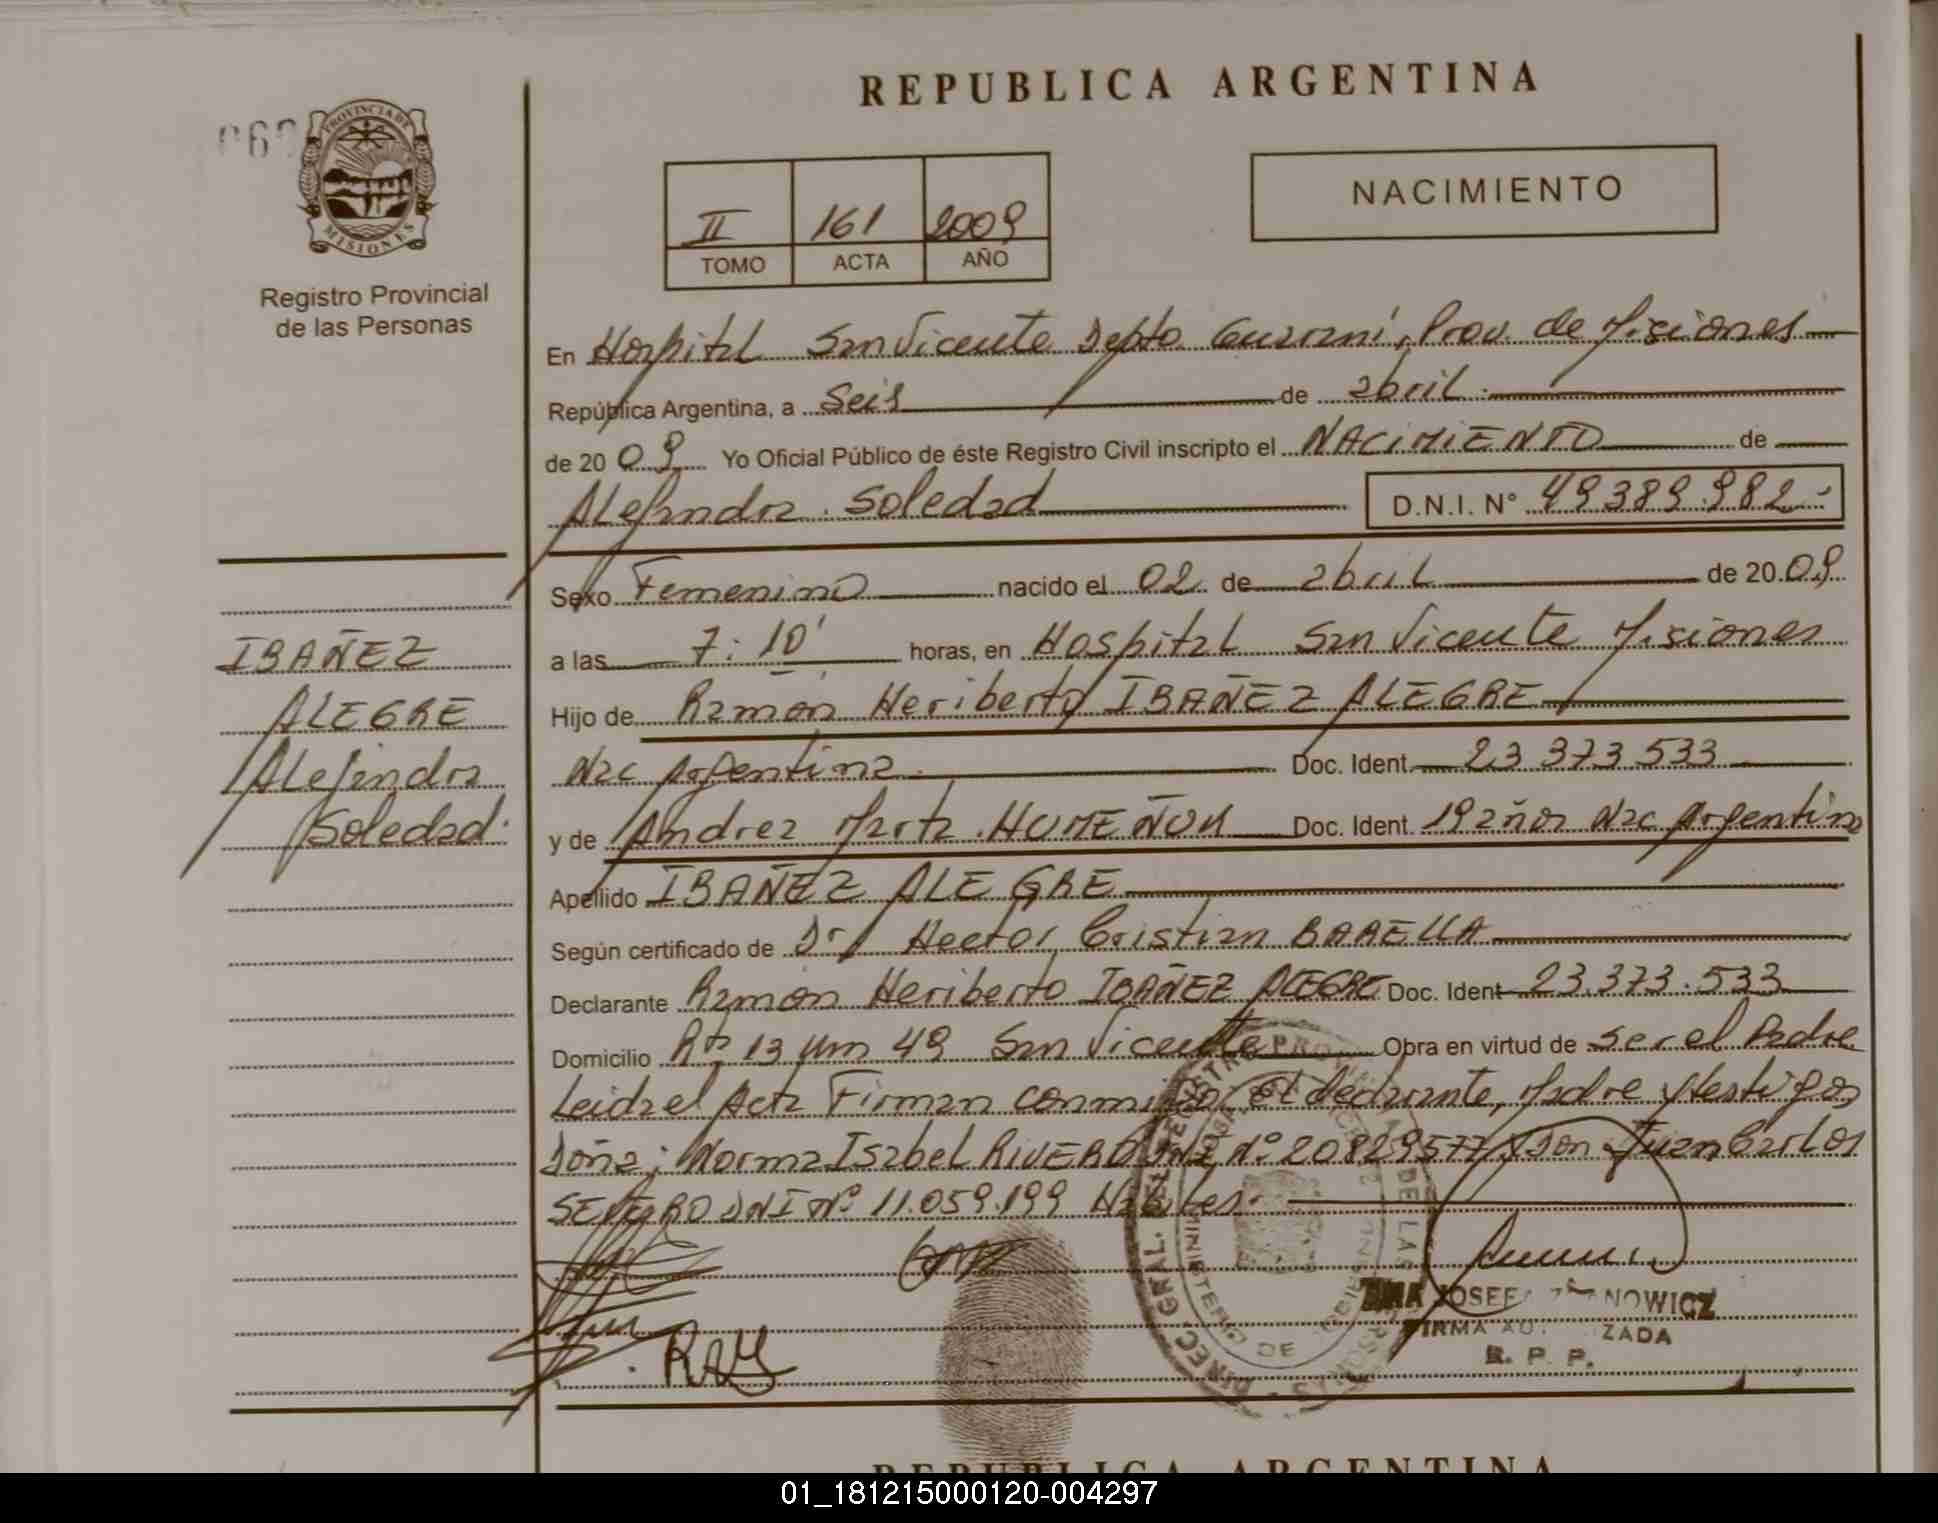 REPUBLICA ARGENTINA
PROVINCIA DE
MISIONES
Registro Provincial
de las Personas
II 161 2009
TOMO ACTA AÑO
NACIMIENTO
En Hospital San Vicente Depto Guarani, Prov. de Misiones
República Argentina, a Seis de abril
de 2009 Yo Oficial Público de éste Registro Civil inscripto el NACIMIENTO de
Alejandra Soledad D.N.I. N° 49389.982
Sexo Femenino nacido el 02 de abril de 2009
a las 7:10' horas, en Hospital San Vicente Misiones
Hijo de Ramón Heriberto IBAÑEZ ALEGRE
Nac Argentina Doc. Ident. 23 373 533
y de Andrea Marta HOMEÑUK Doc. Ident. 19 años Nac Argentina
Apellido IBAÑEZ ALEGRE
Según certificado de Dr Hector Cristian
Declarante Ramón Heriberto IBAÑEZ ALEGRE Doc. Ident 23.373.533
Domicilio Rta 13 Km 49 San Vicente Obra en virtud de ser el Padre
Leida el Acta Firman conmigo el declarante, Madre y testigos
Doña: Norma Isabel RIVERO DNI N° 20829577 y Don Juan Carlos
DNI N° 11.059.199 Habiles
IBAÑEZ
ALEGRE
Alejandra
Soledad
JOSEFA
FIRMA AUTORIZADA
R. P. P.
DIREC. GRAL. DEL REGISTRO PROV. DE LAS PERSONAS
MINISTERIO DE GOBIERNO
REPUBLICA ARGENTINA
01_181215000120-004297